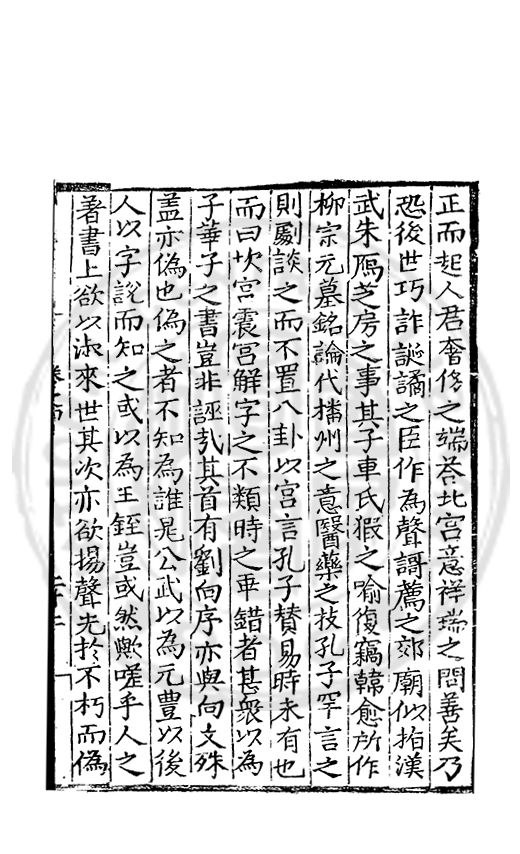 正而起人君奢侈之端荅北宫意祥瑞之問善矣乃
恐後世巧詐誕譎之臣作為聲謌薦之郊廟似指漢
武朱鴈芝房之事其子車氏猳之喻復竊韓愈所作
柳宗元墓銘論代播州之意醫藥之技孔子罕言之
則劇談之而不置八卦以宫言孔子賛易時未有也
而曰坎宫震宫解字之不類時之乖錯者甚衆以為
子華子之書豈非誣㢤其首有劉向序亦與向文殊
盖亦偽也偽之者不知為誰晁公武以為元豊以後
人以字說而知之或以為王銍豈或然歟嗟乎人之
著書上欲以淑來世其次亦欲揚聲光扵不朽而偽